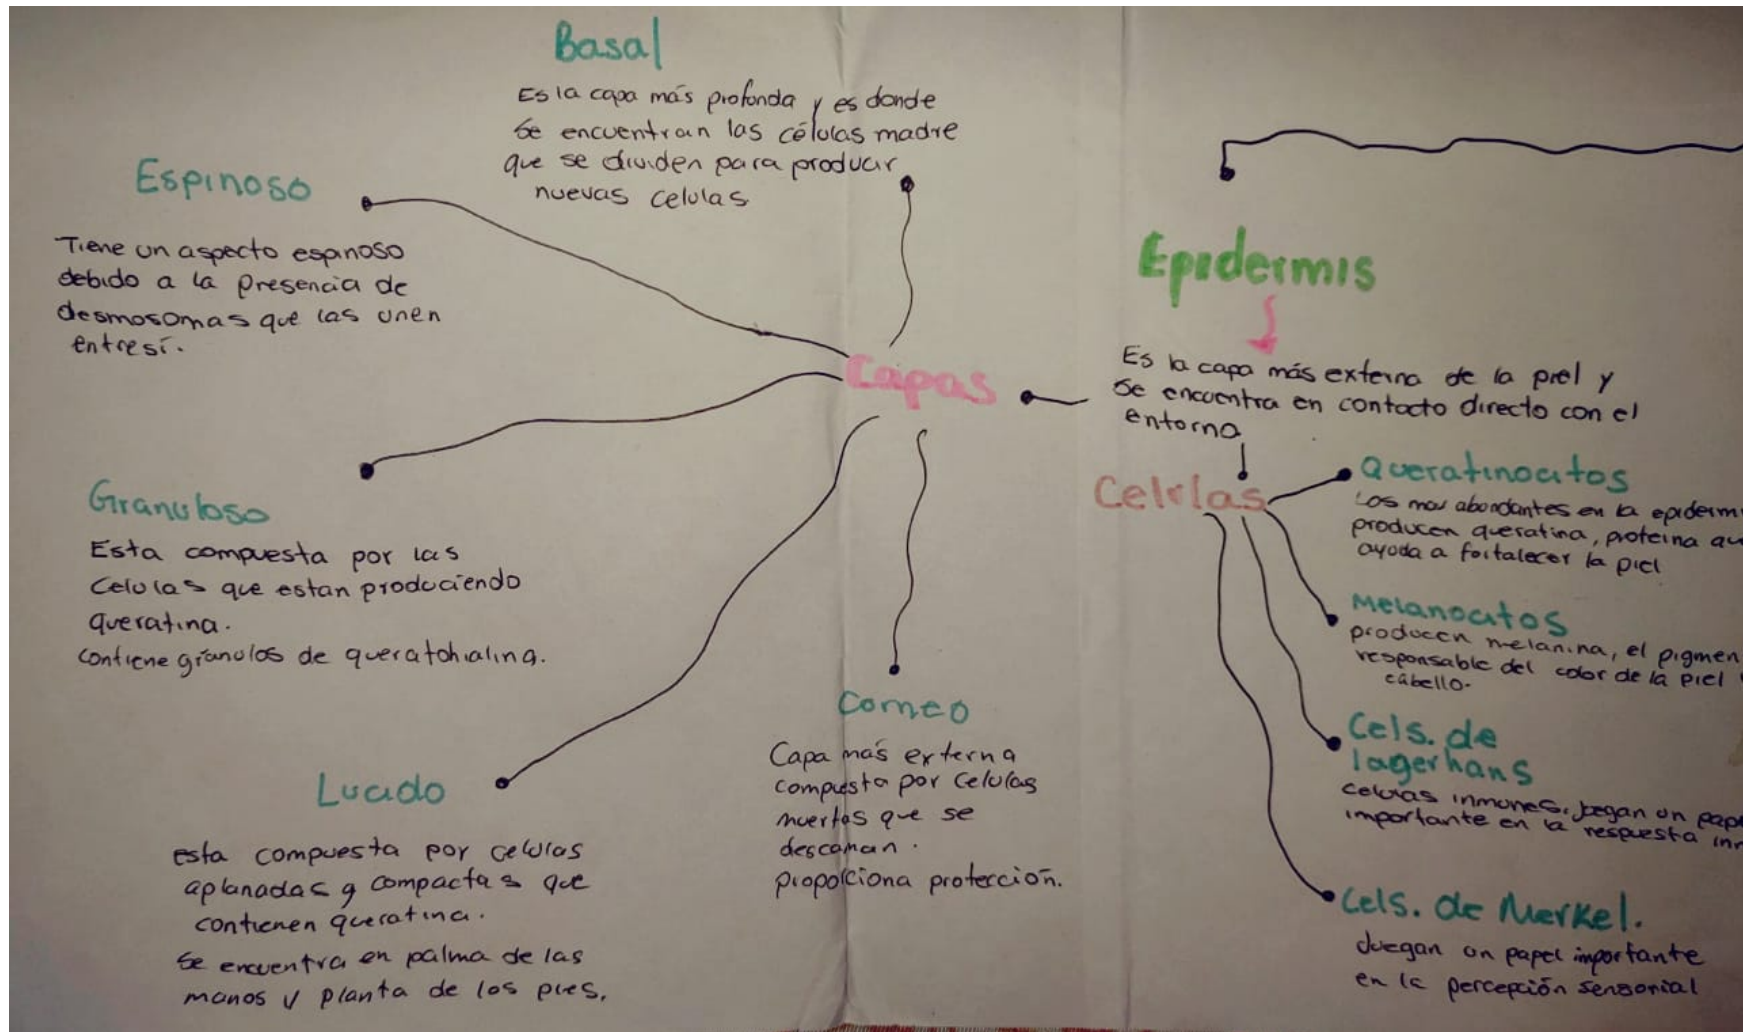 Basal
Es la capa más profunda y es donde
se encuentran las células madre
que se dividen para producir
nuevas celulas
Espinoso
Tiene un aspecto espinoso
debido a la presencia de
desmosomas que las unen
entresí.
Granuloso
Esta compuesta por las
celulas que estan produciendo
queratina.
contiene gránulos de queratohialina.
Lucido
esta compuesta por celulas
aplanadas y compactas que
contienen queratina.
se encuentra en palma de las
manos y planta de los pies.
Capas
Corneo
Capa más externa
compuesta por celulas
muertas que se
descaman.
proporciona protección.
Epidermis
Es la capa más externa de la piel y
se encuentra en contacto directo con el
entorno
Celulas
Queratinocitos
Los mas abundantes en la epiderm
producen queratina, proteina qu
ayuda a fortalecer la piel
Melanocitos
producen melanina, el pigmen
responsable del color de la piel
cabello.
Cels. de
lagerhans
celulas inmunes, juegan un pap
importante en la respuesta in
Cels. de Merkel.
Juegan un papel importante
en la percepción sensorial